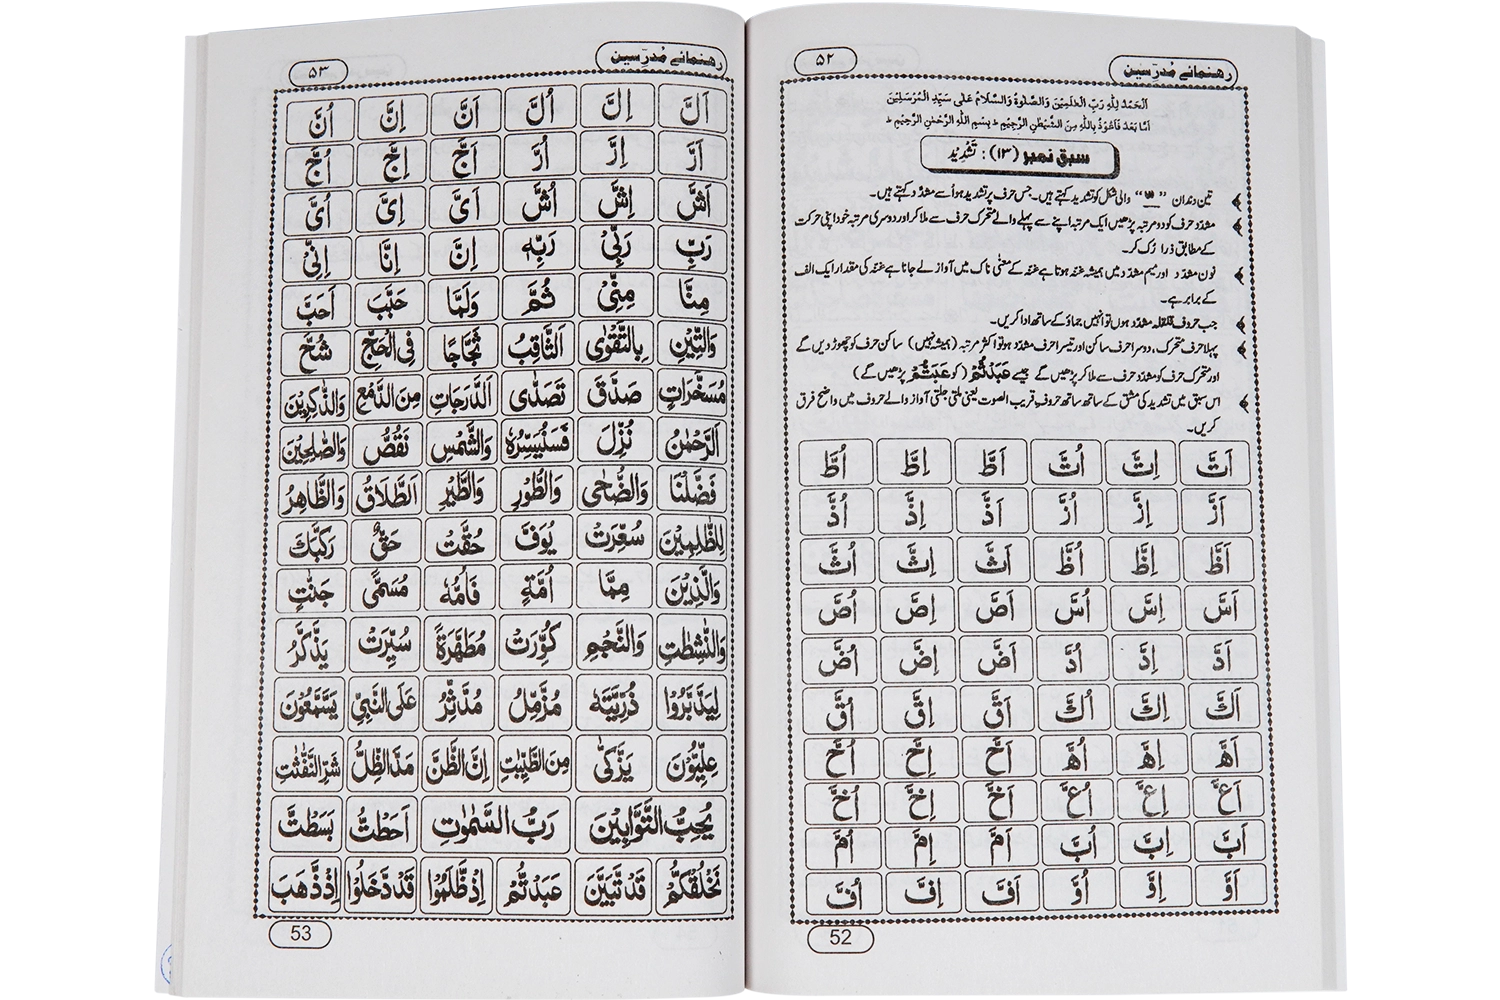 رہنمائے مُدرّسین
۵۲
اَلْحَمْدُ لِلّٰهِ رَبِّ الْعٰلَمِيْنَ وَالصَّلٰوةُ وَالسَّلَامُ عَلٰى سَيِّدِ الْمُرْسَلِيْنَ
اَمَّا بَعْدُ فَاَعُوْذُ بِاللّٰهِ مِنَ الشَّيْطٰنِ الرَّجِيْمِ ط بِسْمِ اللّٰهِ الرَّحْمٰنِ الرَّحِيْمِ ط
سبق نمبر (۱۳) : تَشْدِيْد
تین دندان “ ّ ” والی شکل کو تشدید کہتے ہیں۔ جس حرف پر تشدید ہو اُسے مشدّد کہتے ہیں۔
مشدّد حرف کو دو مرتبہ پڑھیں ایک مرتبہ اپنے سے پہلے والے متحرک حرف سے ملا کر اور دوسری مرتبہ خود اپنی حرکت
کے مطابق ذرا رُک کر۔
نون مشدّد اور میم مشدّد میں ہمیشہ غنہ ہوتا ہے غنہ کے معنٰی ناک میں آواز لے جانا ہے غنہ کی مقدار ایک الف
کے برابر ہے۔
جب حروف قلقلہ مشدّد ہوں تو انہیں جماؤ کے ساتھ ادا کریں۔
پہلا حرف متحرک، دوسرا حرف ساکن اور تیسرا حرف مشدّد ہو تو اکثر مرتبہ (ہمیشہ نہیں) ساکن حرف کو چھوڑ دیں گے
اور متحرک حرف کو مشدّد حرف سے ملا کر پڑھیں گے جیسے عَبَدْتُّمْ (کو عَبَتُّمْ پڑھیں گے)
اس سبق میں تشدید کی مشق کے ساتھ ساتھ حروفِ قریب الصوت یعنی ملتی جلتی آواز والے حروف میں واضح فرق
کریں۔
اَتَّ اِتَّ اُتَّ اَطَّ اِطَّ اُطَّ
اَزَّ اِزَّ اُزَّ اَذَّ اِذَّ اُذَّ
اَظَّ اِظَّ اُظَّ اَثَّ اِثَّ اُثَّ
اَسَّ اِسَّ اُسَّ اَصَّ اِصَّ اُصَّ
اَدَّ اِدَّ اُدَّ اَضَّ اِضَّ اُضَّ
اَكَّ اِكَّ اُكَّ اَقَّ اِقَّ اُقَّ
اَهَّ اِهَّ اُهَّ اَحَّ اِحَّ اُحَّ
اَعَّ اِعَّ اُعَّ اَخَّ اِخَّ اُخَّ
اَبَّ اِبَّ اُبَّ اَمَّ اِمَّ اُمَّ
اَوَّ اِوَّ اُوَّ اَفَّ اِفَّ اُفَّ
52
رہنمائے مُدرّسین
۵۳
اَلَّ اِلَّ اُلَّ اَنَّ اِنَّ اُنَّ
اَرَّ اِرَّ اُرَّ اَجَّ اِجَّ اُجَّ
اَشَّ اِشَّ اُشَّ اَىَّ اِىَّ اُىَّ
رَبِّ رَبِّىْ رَبِّهٖ اِنَّ اِنَّا اِنِّىْ
مِنَّا مِنِّىْ ثُمَّ وَلَمَّا حَبَّبَ اَحَبَّ
وَالتِّيْنِ بِالتَّقْوٰى اَلثَّاقِبُ ثَجَّاجًا فِى الْحَجِّ شُحَّ
مُسَخَّرَاتٍ صَدَّقَ تَصَدّٰى اَلدَّرَجَاتِ مِنَ الدَّمْعِ وَالذّٰكِرِيْنَ
اَلرَّحْمٰنُ نُزِّلَ فَسَنُيَسِّرُهٗ وَالشَّمْسِ نَقُصُّ وَالصّٰلِحِيْنَ
فَضَّلْنَا وَالضُّحٰى وَالطُّوْرِ وَالطَّيْرِ اَلطَّلَاقُ وَالظَّاهِرُ
لِلظّٰلِمِيْنَ سُعِّرَتْ يُوَفَّ حُقَّتْ حَقٌّ رَكَّبَكَ
وَالَّذِيْنَ مِمَّا اُمَّةٍ فَاُمُّهٗ مُسَمًّى جَنّٰتٍ
وَالنّٰشِطٰتِ وَالنَّجْمِ كُوِّرَتْ مُطَهَّرَةً سُيِّرَتْ يَذَّكَّرُ
لِيَدَّبَّرُوْا ذُرِّيَّتَهٗ مُزَّمِّلُ مُدَّثِّرُ عَلَى النَّبِىِّ يَسَّمَّعُوْنَ
عِلِّيُّوْنَ يَزَّكّٰى مِنَ الطَّيِّبٰتِ اِنَّ الظَّنَّ مَدَّ الظِّلَّ شَرِّ النَّفّٰثٰتِ
يُحِبُّ التَّوَّابِيْنَ رَبُّ السَّمٰوٰتِ اَحَطْتُّ بَسَطْتَّ
نَخْلُقْكُّمْ قَدْ تَّبَيَّنَ عَبَدْتُّمْ اِذْ ظَّلَمُوْا قَدْ دَّخَلُوْا اِذْ ذَّهَبَ
53